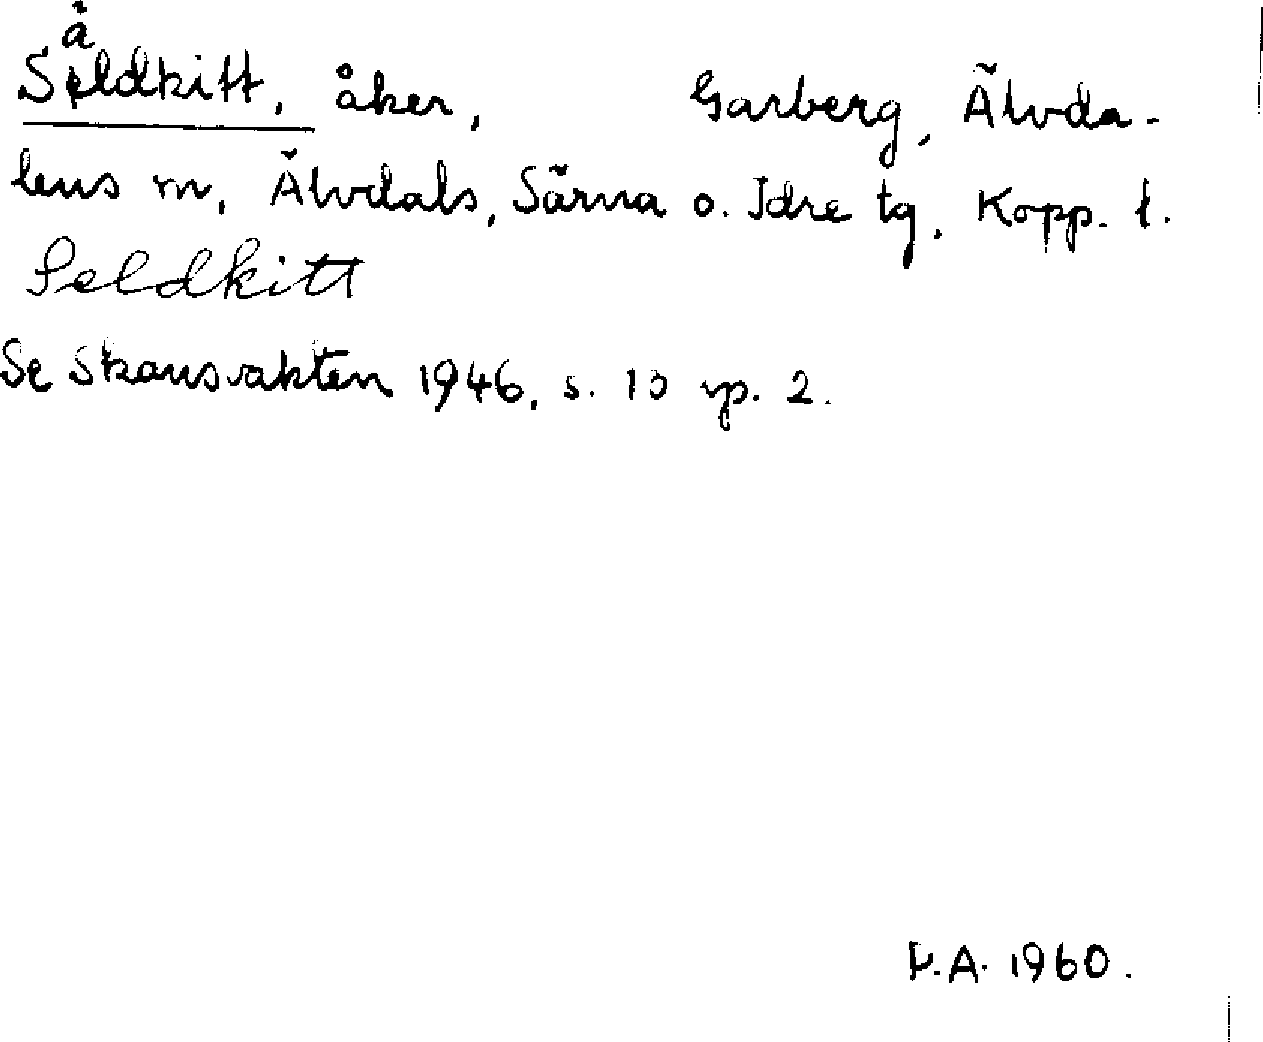 å
Seldkitt, åker, Garberg, Älvda-
lens sn, Älvdals, Särna o. Idre tg, Kopp. l.
Seldkitt
Se Skansvakten 1946, s. 13 sp. 2.
P.A. 1960.